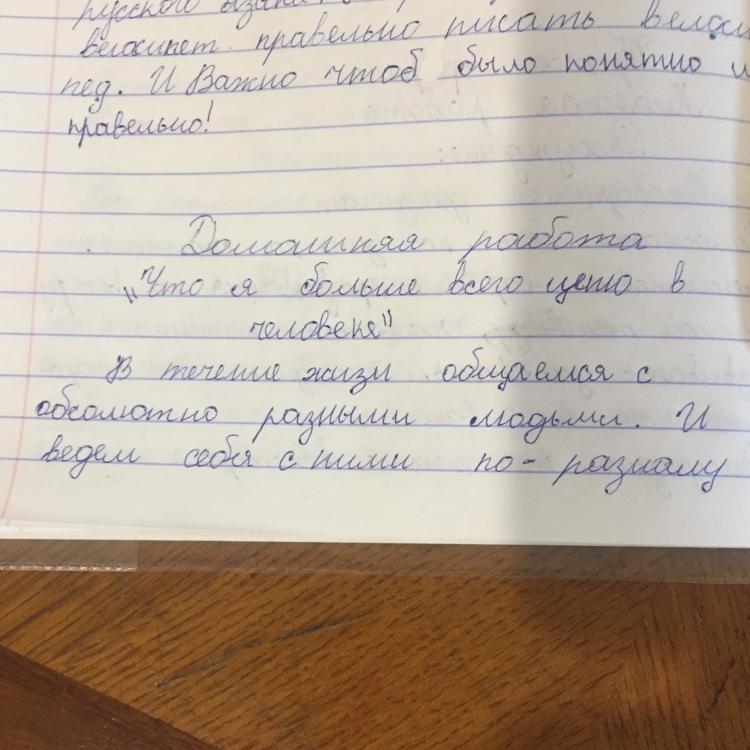 русского языка
велосипет. правельно писать велоси
пед. И Важно чтоб было понятно и
правельно!
Домашняя работа
"Что я больше всего ценю в
человеке"
В течение жизи общаемся с
абсолютно разными людьми. И
ведем себя с ними по-разному